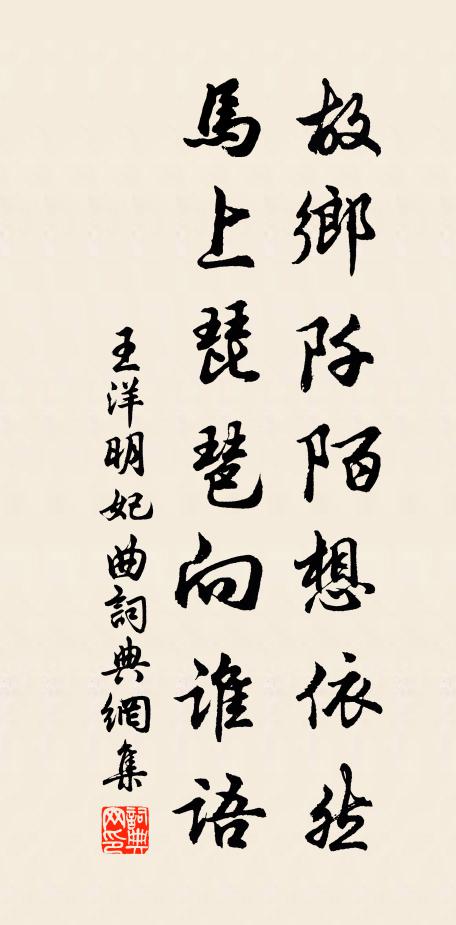 故鄉阡陌想依然
馬上琵琶向誰語
王洋明妃曲詞典網集
詞典網印